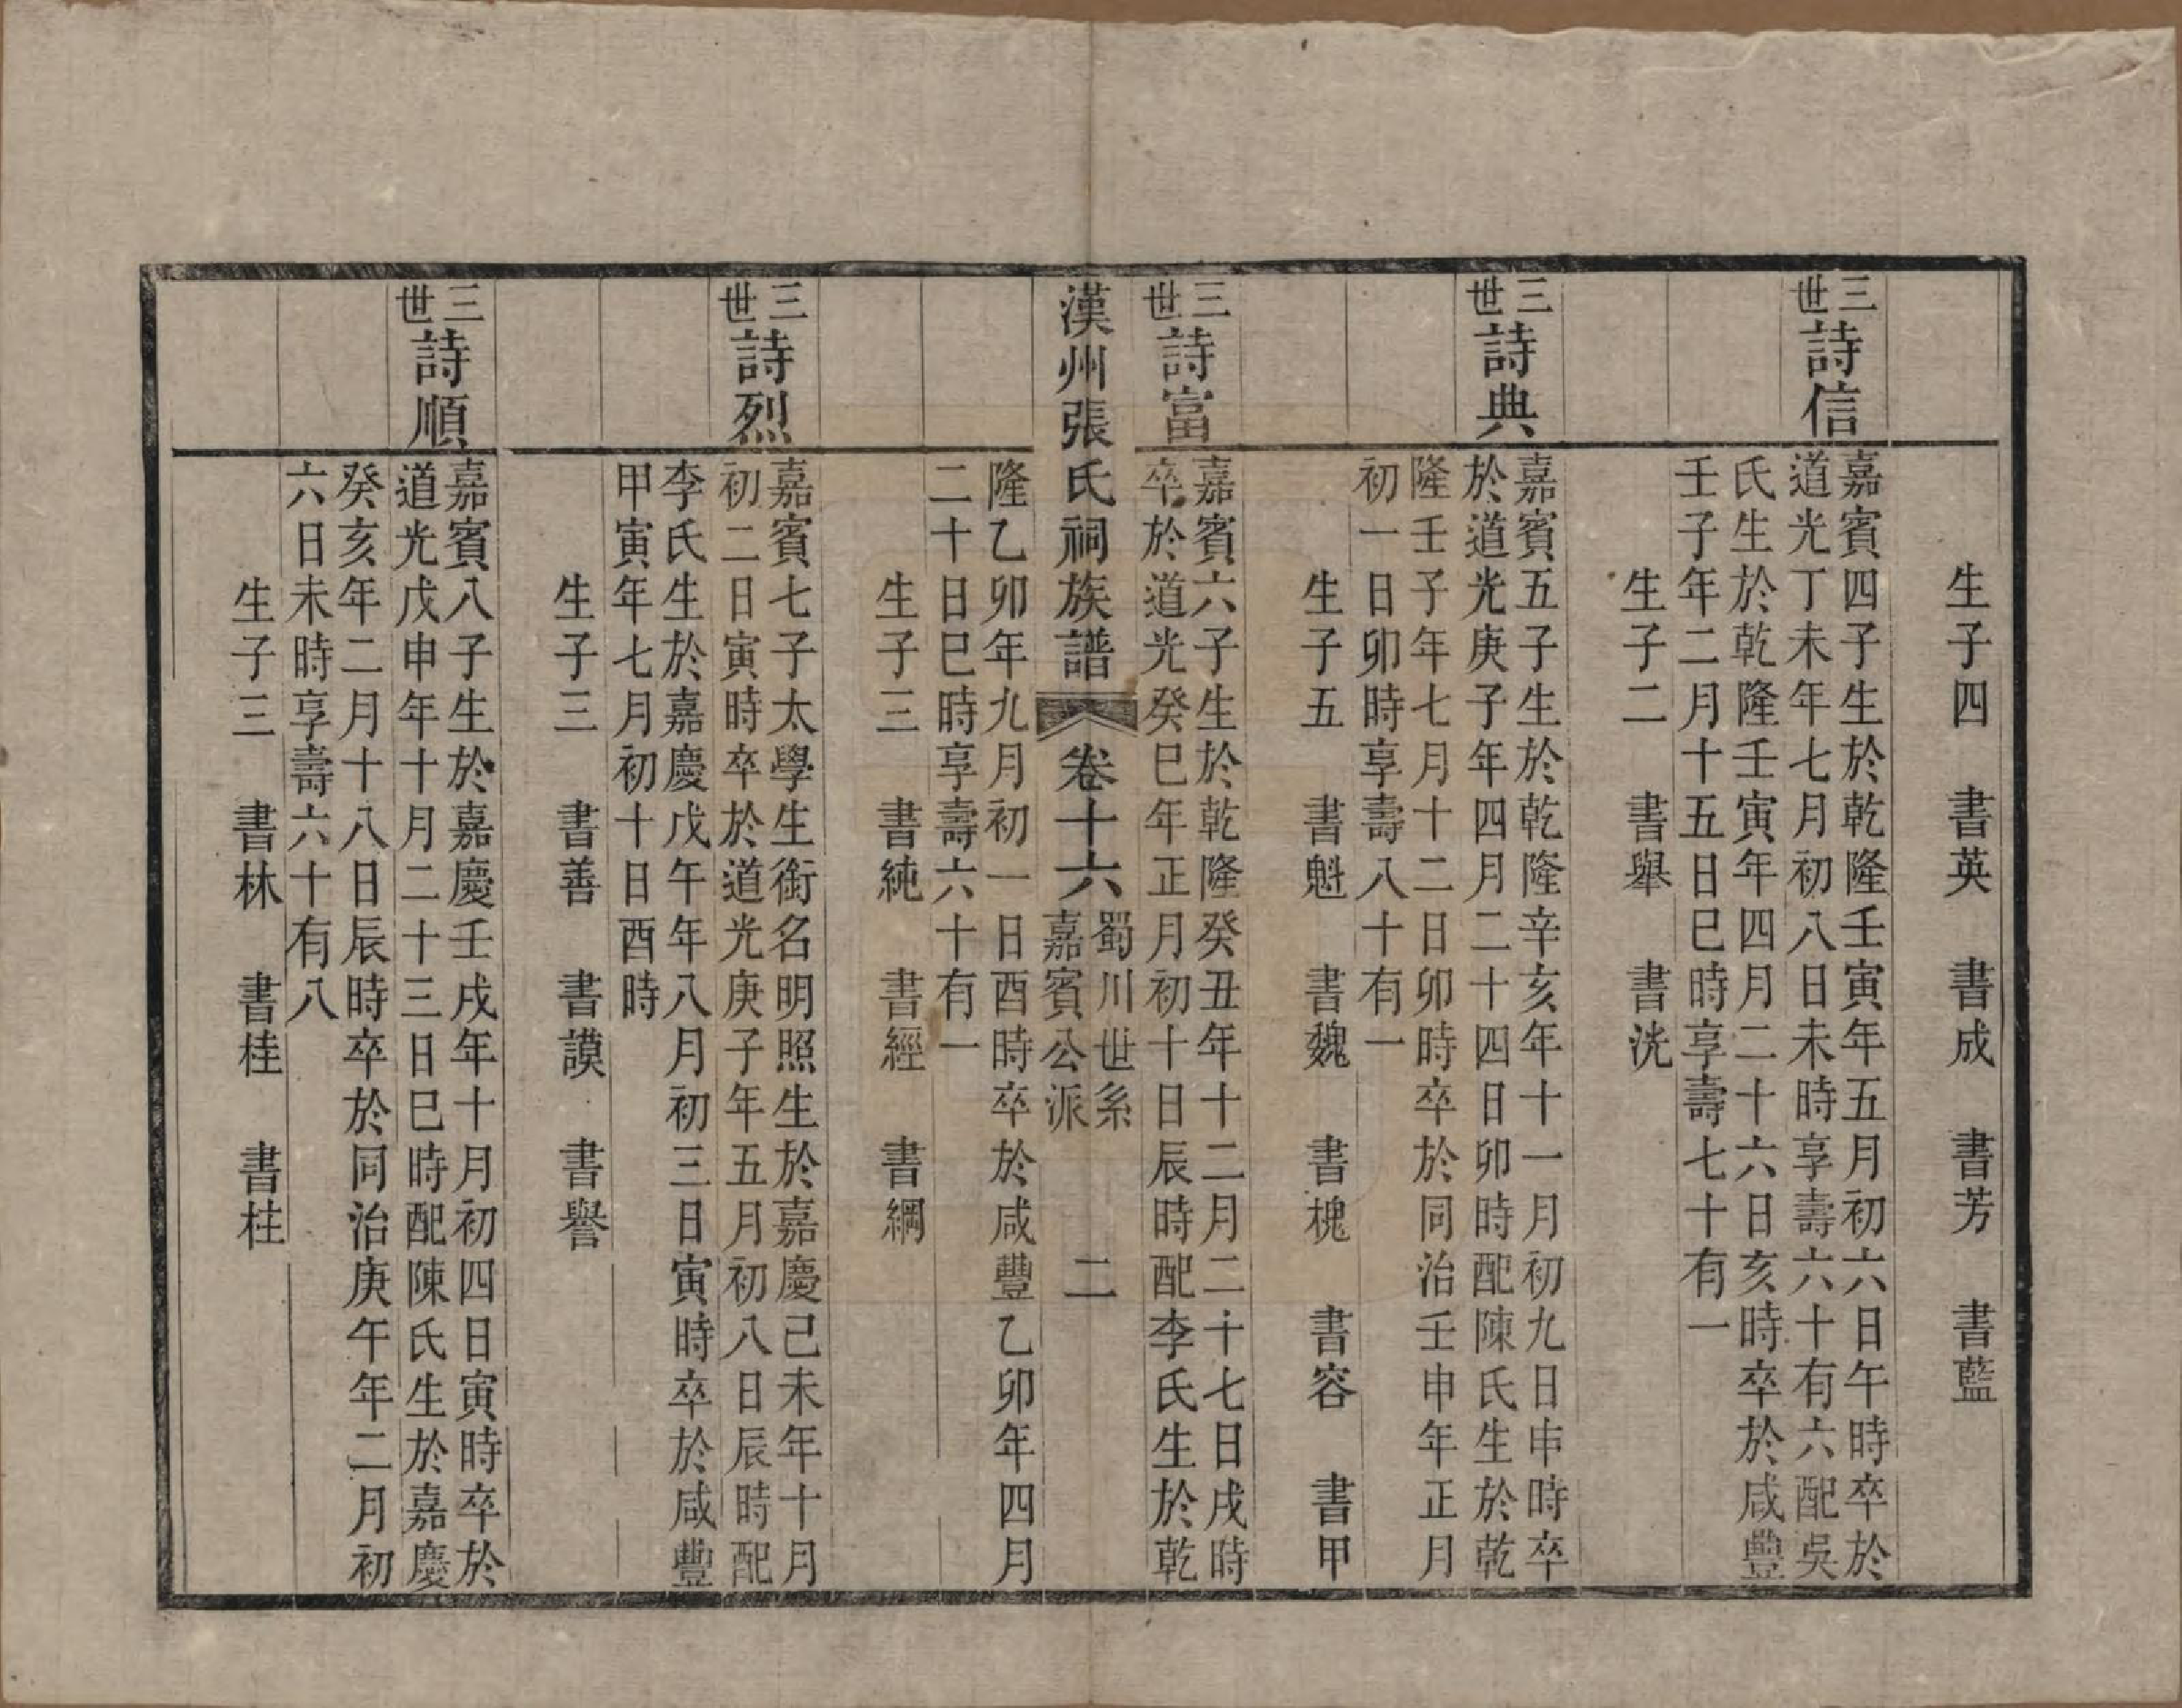 生子四　書英　書成　書芳　書藍
三世詩信
嘉賓四子生於乾隆壬寅年五月初六日午時卒於
道光丁未年七月初八日未時享壽六十有六配吳
氏生於乾隆壬寅年四月二十六日亥時卒於咸豐
壬子年二月十五日巳時享壽七十有一
生子二　書舉　書洸
三世詩典
嘉賓五子生於乾隆辛亥年十一月初九日申時卒
於道光庚子年四月二十四日卯時配陳氏生於乾
隆壬子年七月十二日卯時卒於同治壬申年正月
初一日卯時享壽八十有一
生子五　書魁　書魏　書槐　書容　書甲
三世詩富
嘉賓六子生於乾隆癸丑年十二月二十七日戌時
卒於道光癸巳年正月初十日辰時配李氏生於乾
漢州張氏祠族譜　卷十六　蜀川世系嘉賓公派　二
隆乙卯年九月初一日酉時卒於咸豐乙卯年四月
二十日巳時享壽六十有一
生子三　書純　書經　書綱
三世詩烈
嘉賓七子太學生銜名明照生於嘉慶己未年十月
初二日寅時卒於道光庚子年五月初八日辰時配
李氏生於嘉慶戊午年八月初三日寅時卒於咸豐
甲寅年七月初十日酉時
生子三　書善　書謨　書譽
三世詩順
嘉賓八子生於嘉慶壬戌年十月初四日寅時卒於
道光戊申年十月二十三日巳時配陳氏生於嘉慶
癸亥年二月十八日辰時卒於同治庚午年二月初
六日未時享壽六十有八
生子三　書林　書桂　書柱